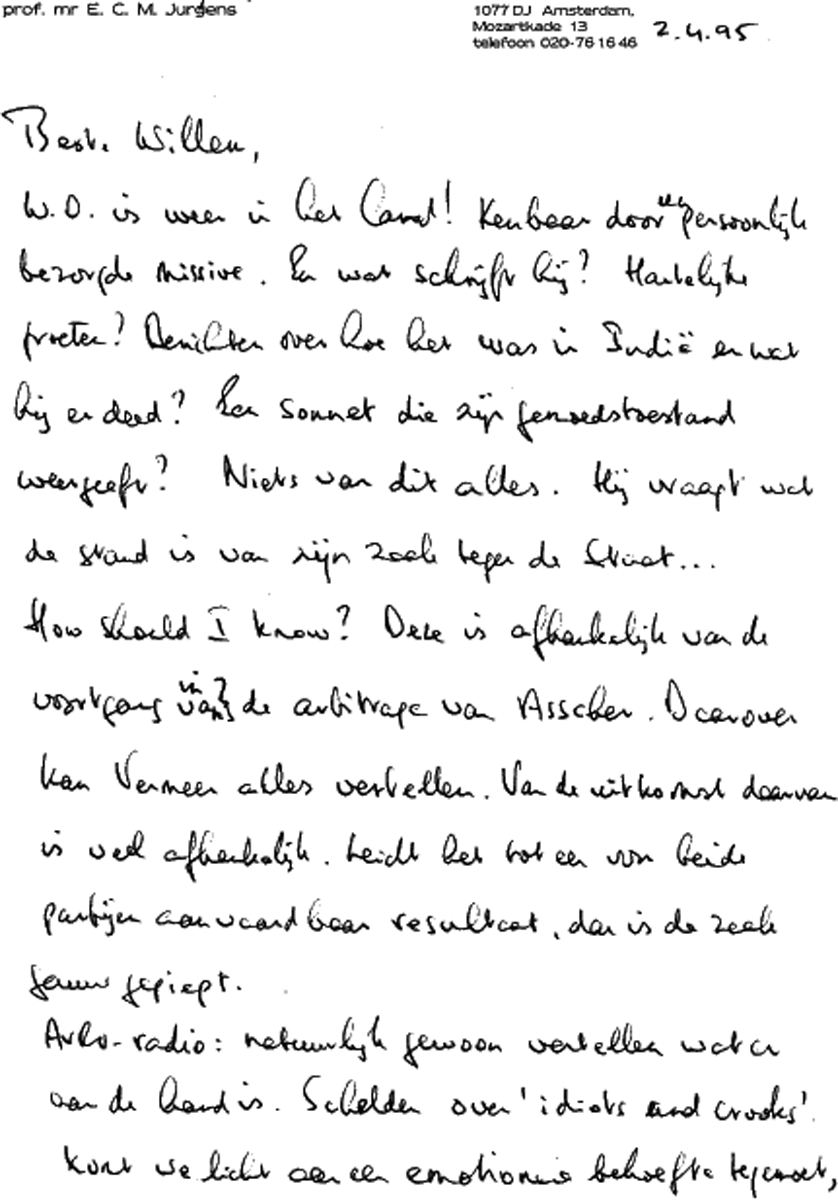 prof. mr E. C. M. Jurgens
1077 DJ Amsterdam,
Mozartkade 13
telefoon 020-76 16 46
2.4.95
Beste Willem,
W.O. is weer in het land! Kenbaar door een persoonlijk
bezorgde missive. En wat schrijft hij? Hartelijke
groeten? Berichten over hoe het was in Indië en wat
hij er deed? Een sonnet die zijn gemoedstoestand
weergeeft? Niets van dit alles. Hij vraagt wat
de stand is van zijn zaak tegen de Staat...
How should I know? Deze is afhankelijk van de
voortgang in de arbitrage van Asscher. Daarover
kan Vermeer alles vertellen. Van de uitkomst daarvan
is veel afhankelijk. Leidt het tot een voor beide
partijen aanvaardbaar resultaat, dan is de zaak
gauw gepiept.
Avro-radio: natuurlijk gewoon vertellen wat er
aan de hand is. Schelden over 'idiots and crooks'.
komt wellicht aan een emotionele behoefte tegemoet,